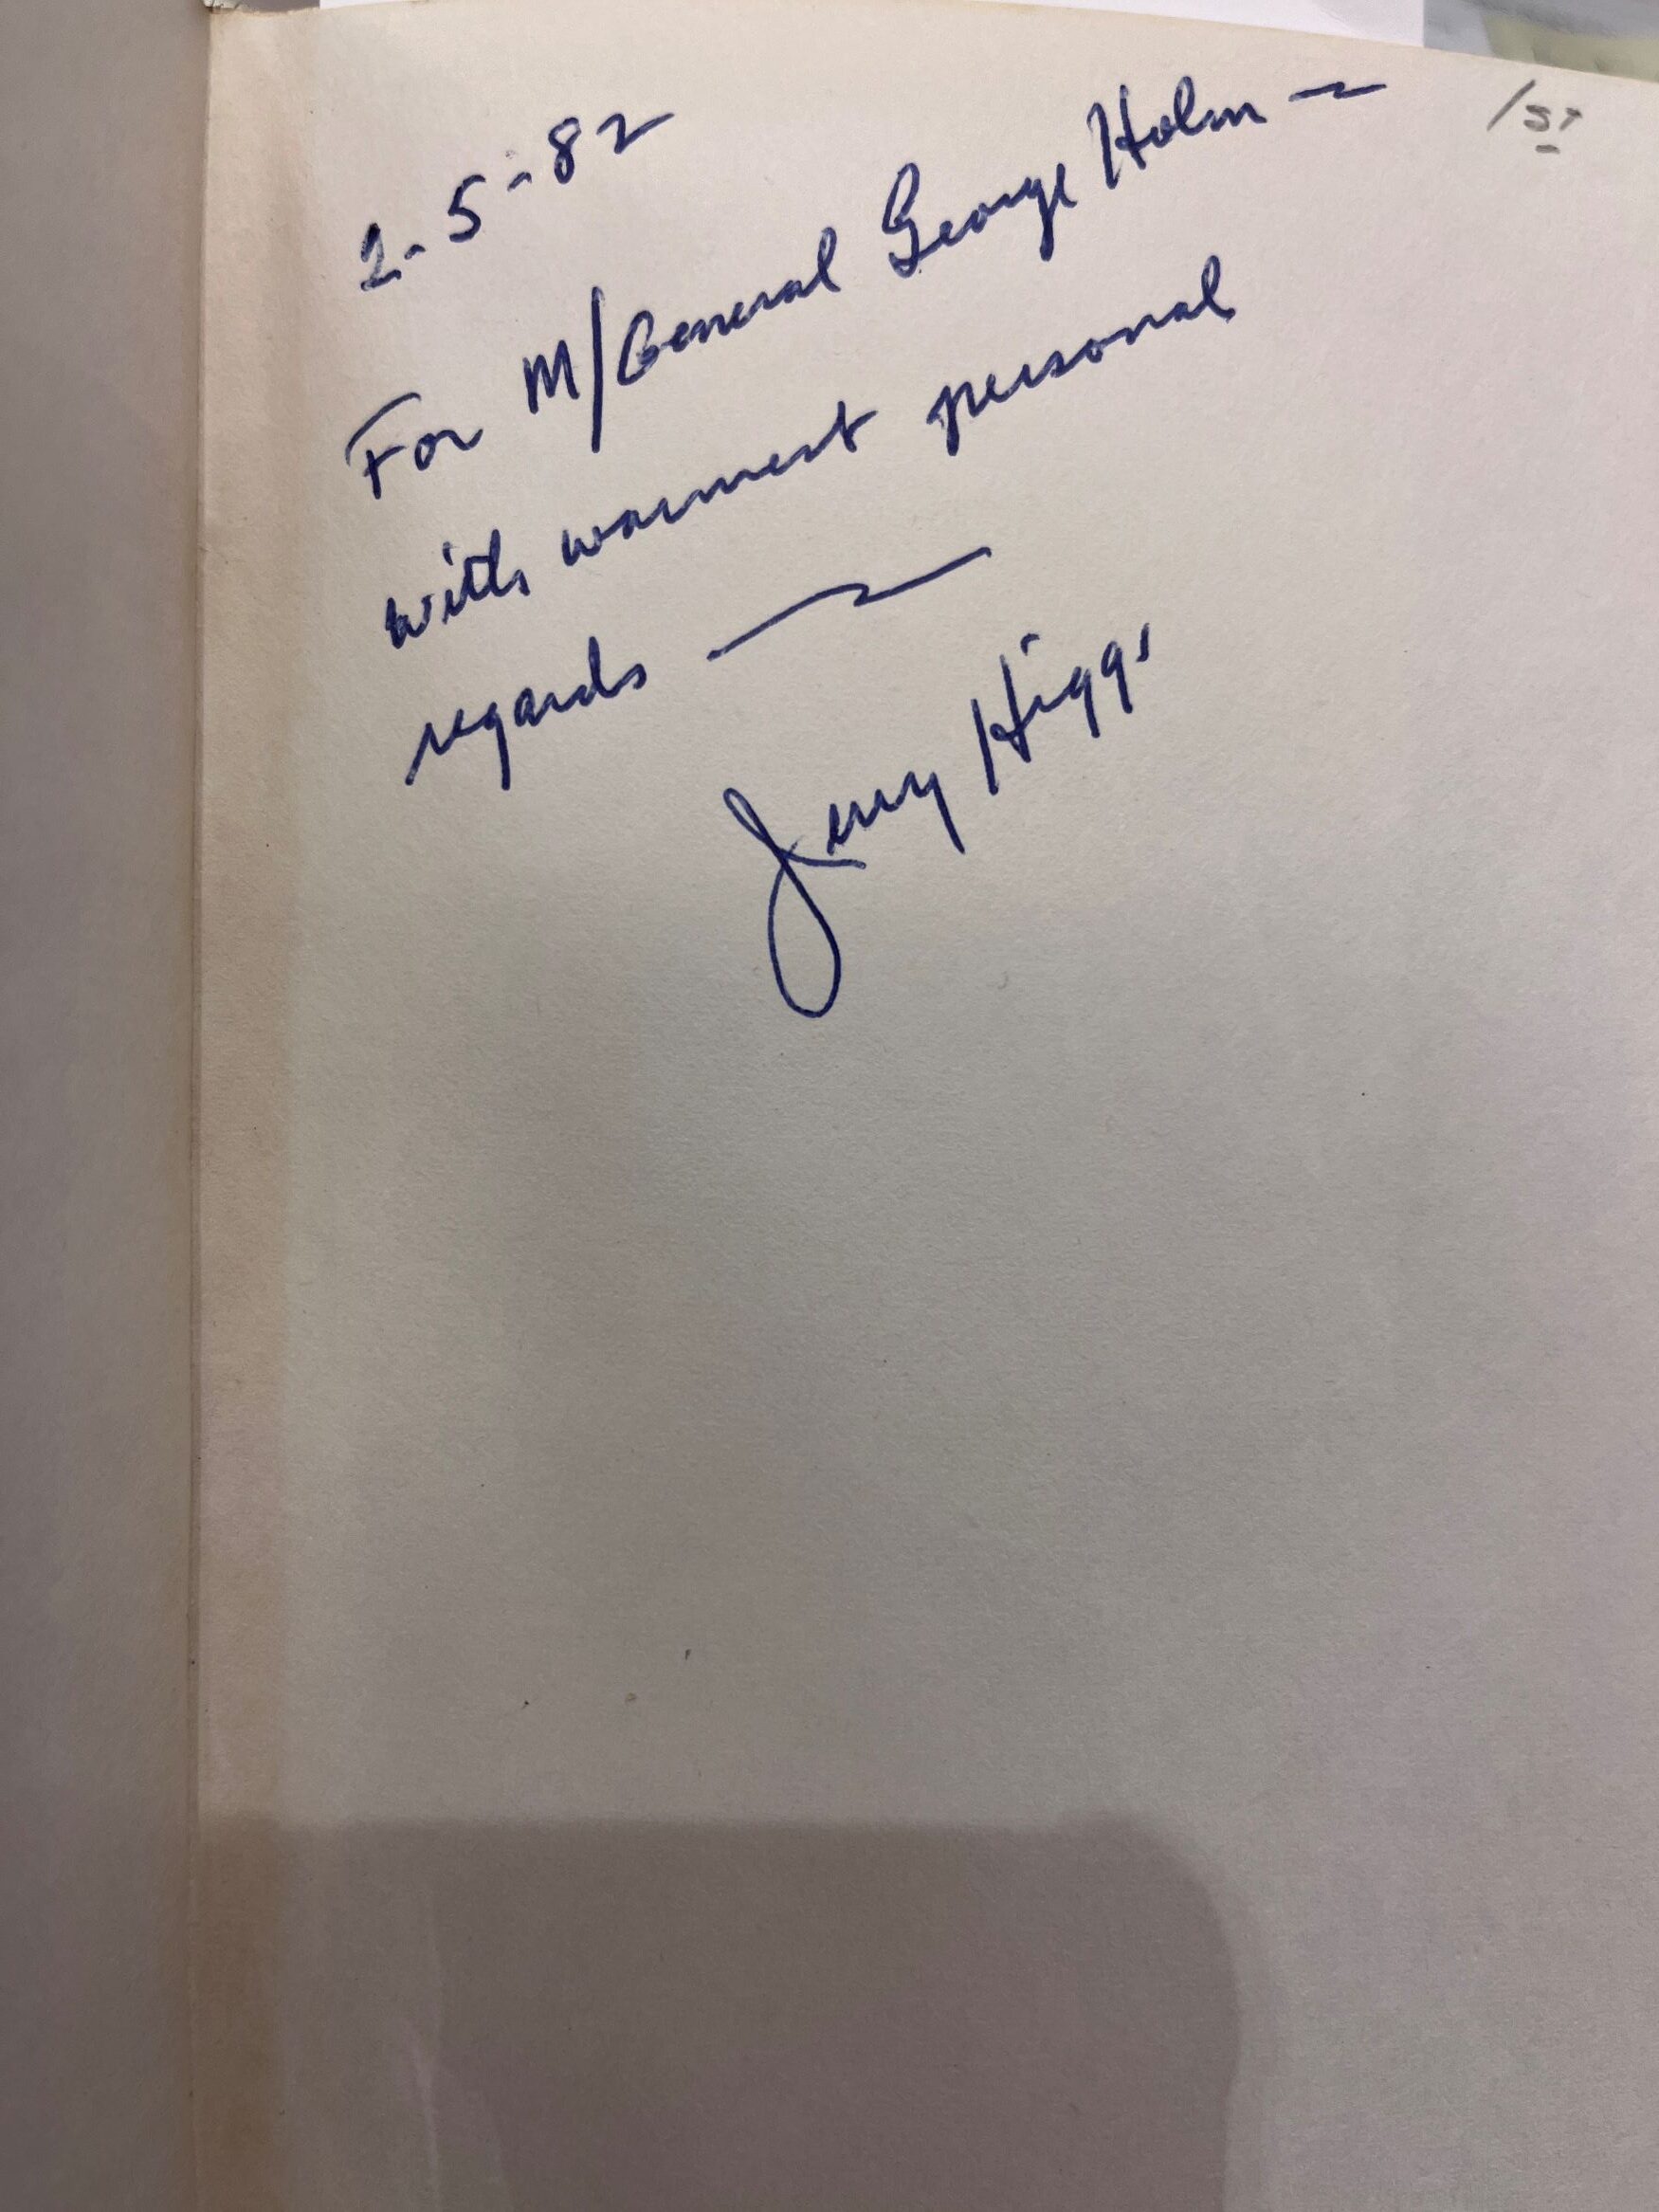 2-5-82
1st
For M/General George Holm —
with warmest personal
regards —
Jerry Higgs